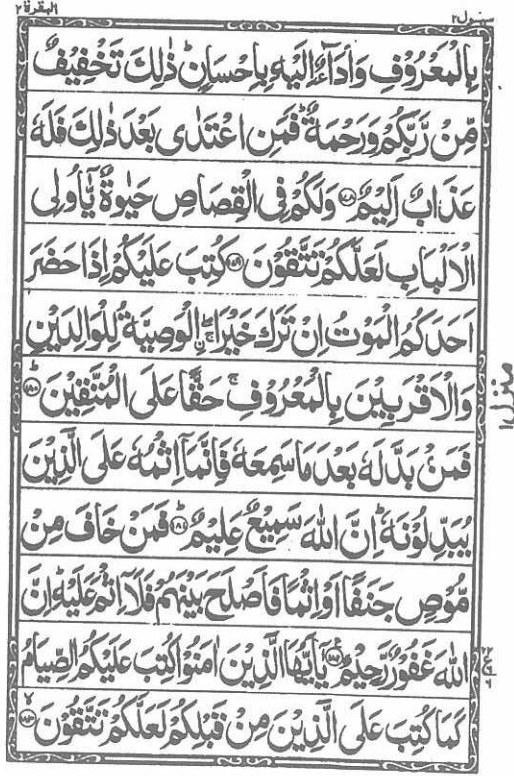 البقرة ٢
سيقول ٢
بِالْمَعْرُوْفِ وَاَدَآءٌ اِلَيْهِ بِاِحْسَانٍ ؕ ذٰلِكَ تَخْفِيْفٌ
مِّنْ رَّبِّكُمْ وَرَحْمَةٌ ؕ فَمَنِ اعْتَدٰى بَعْدَ ذٰلِكَ فَلَهٗ
عَذَابٌ اَلِيْمٌ ۝۱۷۸ وَلَكُمْ فِى الْقِصَاصِ حَيٰوةٌ يّٰۤاُولِى
الْاَلْبَابِ لَعَلَّكُمْ تَتَّقُوْنَ ۝۱۷۹ كُتِبَ عَلَيْكُمْ اِذَا حَضَرَ
اَحَدَكُمُ الْمَوْتُ اِنْ تَرَكَ خَيْرَا ۖۚ اۨلْوَصِيَّةُ لِلْوَالِدَيْنِ
وَالْاَقْرَبِيْنَ بِالْمَعْرُوْفِ ۚ حَقًّا عَلَى الْمُتَّقِيْنَ ۝۱۸۰ؕ
فَمَنْۢ بَدَّلَهٗ بَعْدَ مَا سَمِعَهٗ فَاِنَّمَاۤ اِثْمُهٗ عَلَى الَّذِيْنَ
يُبَدِّلُوْنَهٗ ؕ اِنَّ اللّٰهَ سَمِيْعٌ عَلِيْمٌ ۝۱۸۱ؕ فَمَنْ خَافَ مِنْ
مُّوْصٍ جَنَفًا اَوْ اِثْمًا فَاَصْلَحَ بَيْنَهُمْ فَلَاۤ اِثْمَ عَلَيْهِ ؕ اِنَّ
اللّٰهَ غَفُوْرٌ رَّحِيْمٌ ۝۱۸۲ يٰۤاَيُّهَا الَّذِيْنَ اٰمَنُوْا كُتِبَ عَلَيْكُمُ الصِّيَامُ
كَمَا كُتِبَ عَلَى الَّذِيْنَ مِنْ قَبْلِكُمْ لَعَلَّكُمْ تَتَّقُوْنَ ۝۱۸۳ۙ
منزل ۱